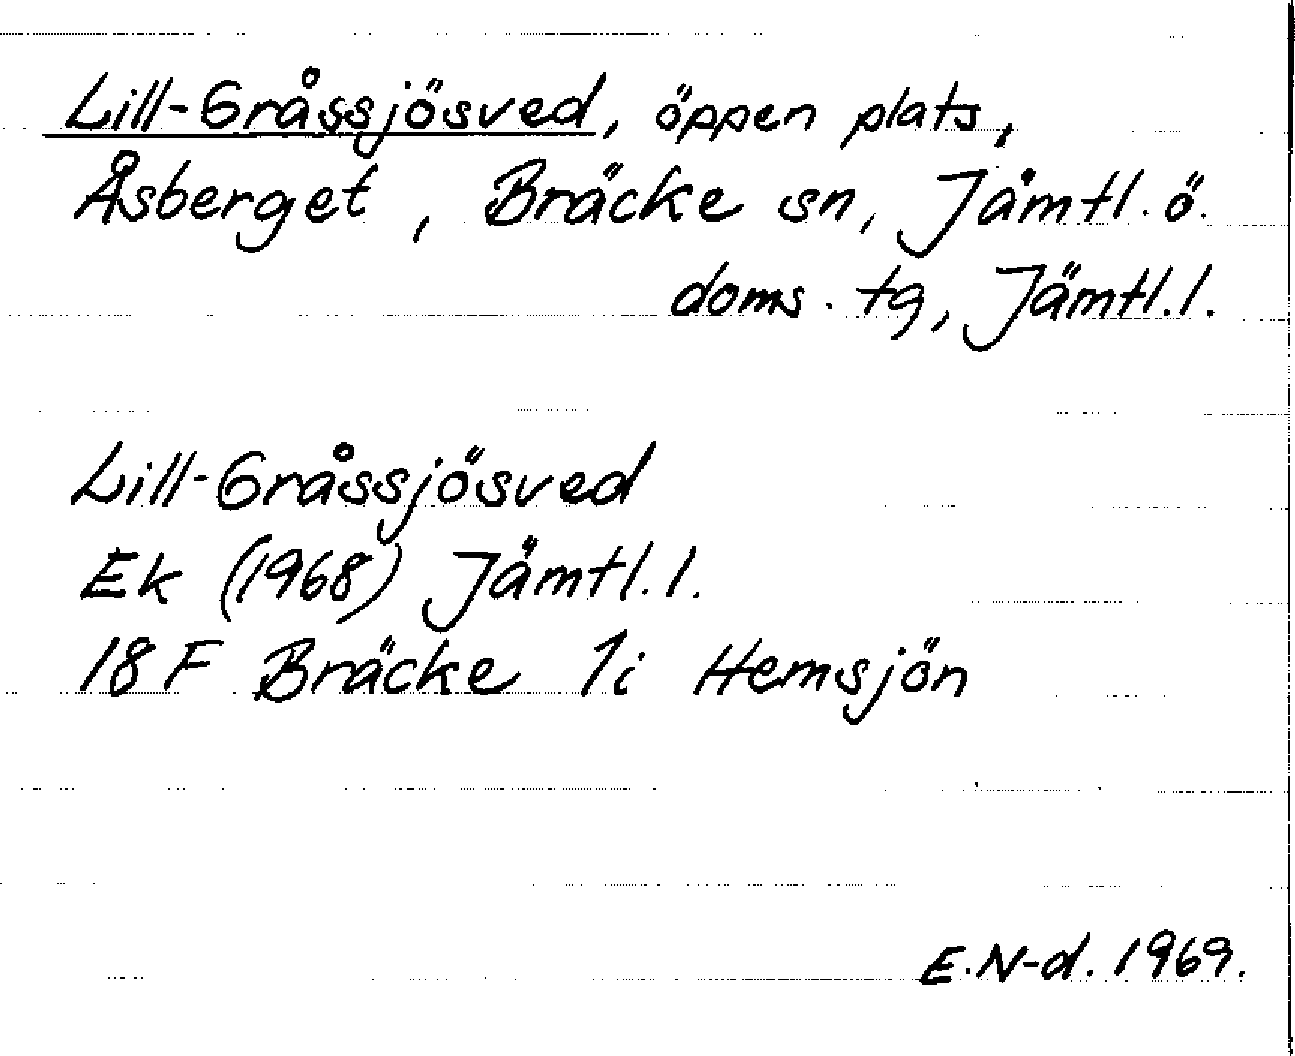 Lill-Gråssjösved, öppen plats,
Åsberget, Bräcke sn, Jämtl. ö.
doms. tg, Jämtl. l.
Lill-Gråssjösved
Ek (1968) Jämtl. l.
18 F Bräcke 1i Hemsjön
E. N-d. 1969.